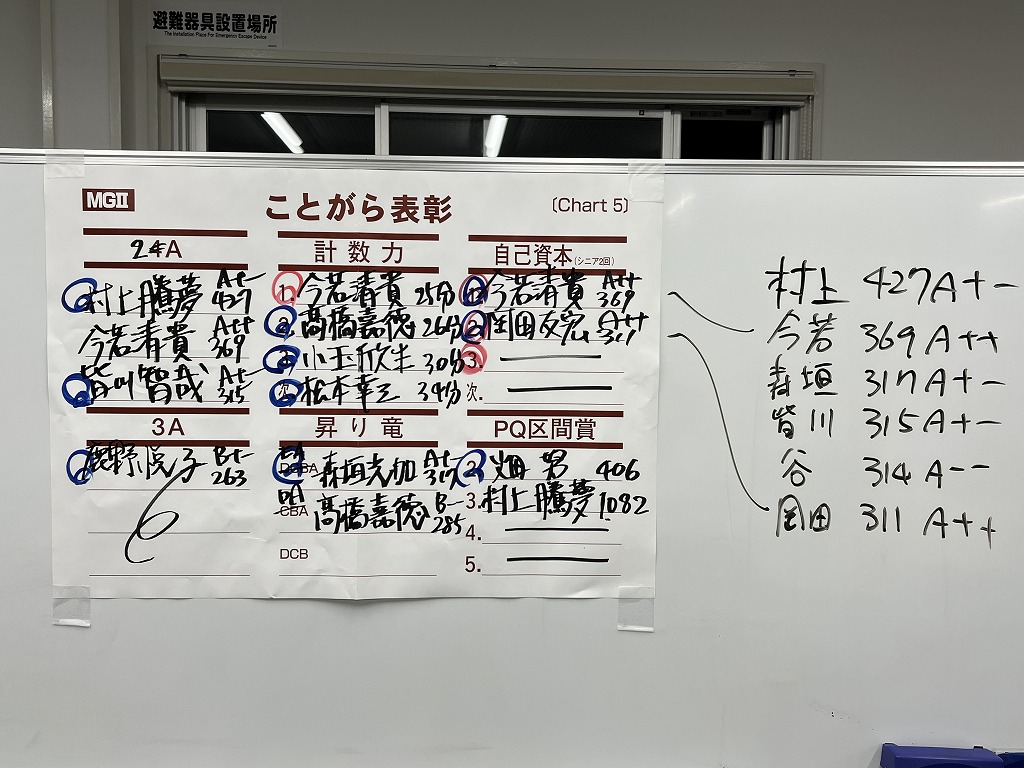 避難器具設置場所
The Installation Place For Emergency Escape Device
MGII
ことがら表彰
〔Chart 5〕
2年A
村上騰夢 A+- 427
今若清貴 A++ 369
皆川智哉 A+- 315
計数力
1. 今若清貴 25分
2. 高橋嘉徳 26分
小玉欣生 30分
次. 松本幸三 34分
自己資本(シニア2回)
1. 今若清貴 A++ 369
2. 岡田友宏 A++ 311
3.
次.
3A
鹿野悦子 B+- 263
昇り竜
DCBA 森垣光加 A+- 317
CBA 高橋嘉徳 B-- 285
DCB
PQ区間賞
2. 畑 男 406
3. 村上騰夢 1082
4.
5.
村上 427 A+-
今若 369 A++
森垣 317 A+-
皆川 315 A+-
谷 314 A--
岡田 311 A++